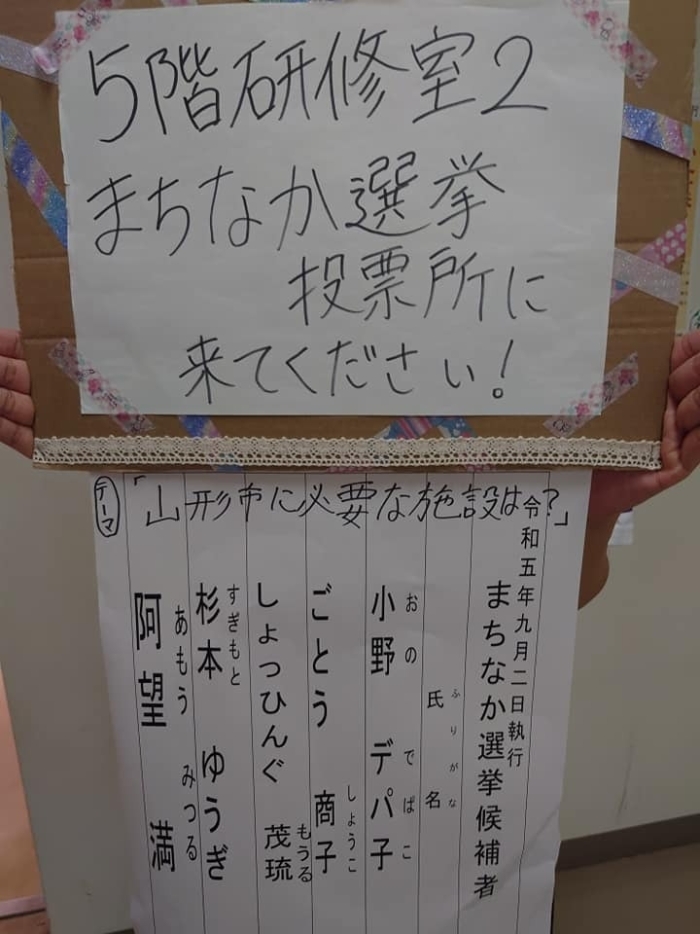 5階研修室2
まちなか選挙
投票所に
来てください!
テーマ
「山形市に必要な施設は?」
令和五年九月二日執行
まちなか選挙候補者
ふりがな
氏名
おの でぱこ
小野 デパ子
しょうこ
ごとう 商子
もうる
しょっひんぐ 茂琉
すぎもと
杉本 ゆうぎ
あもう みつる
阿望 満